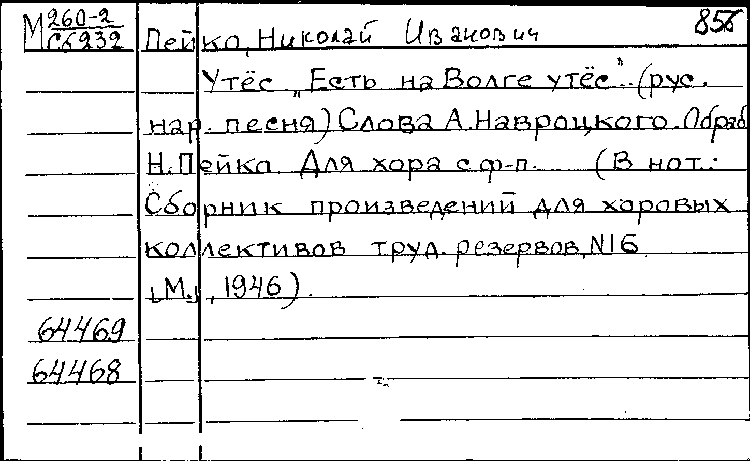 М 260-2
С6232
Пейко, Николай Иванович
Утёс „Есть на Волге утёс". (рус.
нар. песня) Слова А.Навроцкого. Обраб.
Н.Пейко. Для хора с ф-п. (В нот.:
Сборник произведений для хоровых
коллективов труд. резервов, №16
[М.], 1946).
64469
64468